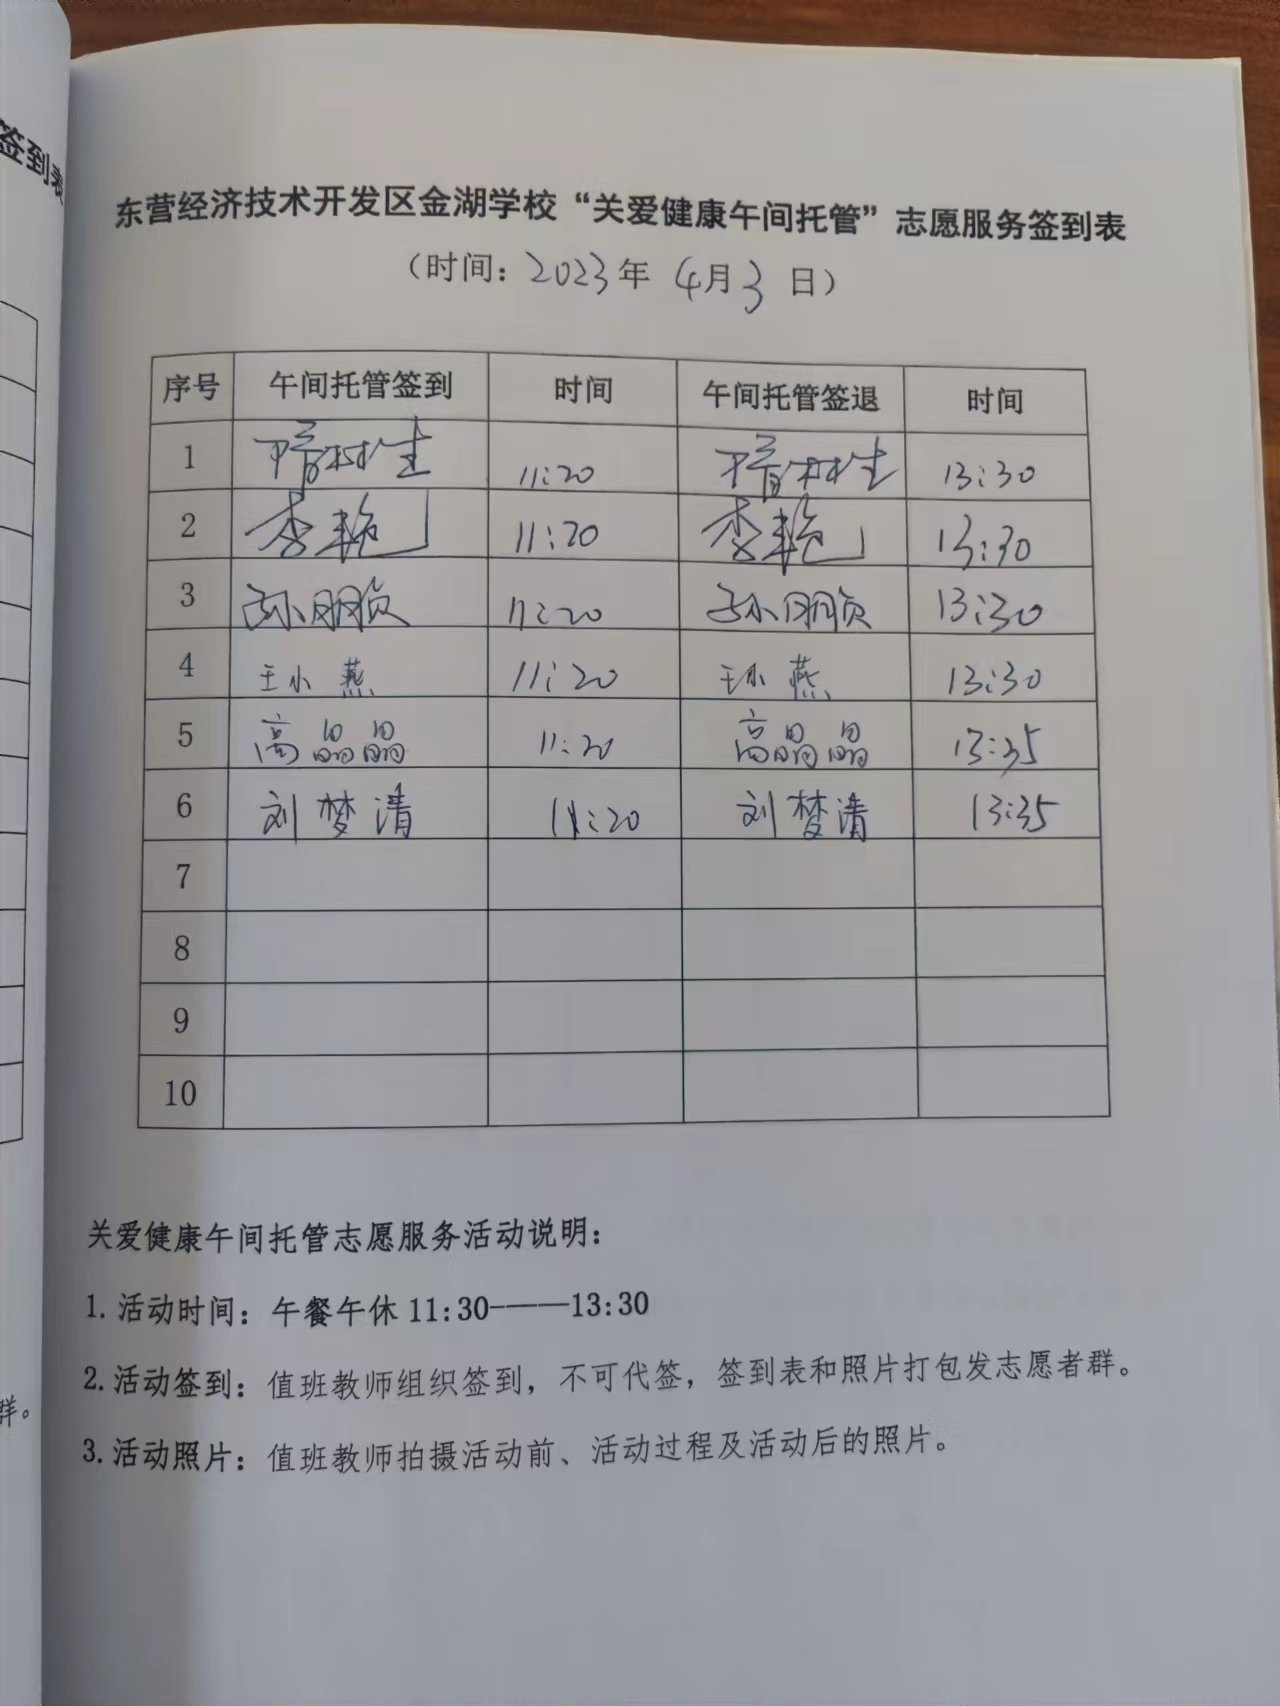 签到表
东营经济技术开发区金湖学校“关爱健康午间托管”志愿服务签到表
（时间：2023年 4月3日）
序号 午间托管签到 时间 午间托管签退 时间
1 11:20 13:30
2 李艳 11:20 李艳 13:30
3 孙朋贞 11:20 孙朋贞 13:30
4 王小燕 11:20 王小燕 13:30
5 高晶晶 11:20 高晶晶 13:35
6 刘梦清 11:20 刘梦清 13:35
7
8
9
10
关爱健康午间托管志愿服务活动说明：
1.活动时间：午餐午休11:30——13:30
2.活动签到：值班教师组织签到，不可代签，签到表和照片打包发志愿者群。
群。
3.活动照片：值班教师拍摄活动前、活动过程及活动后的照片。